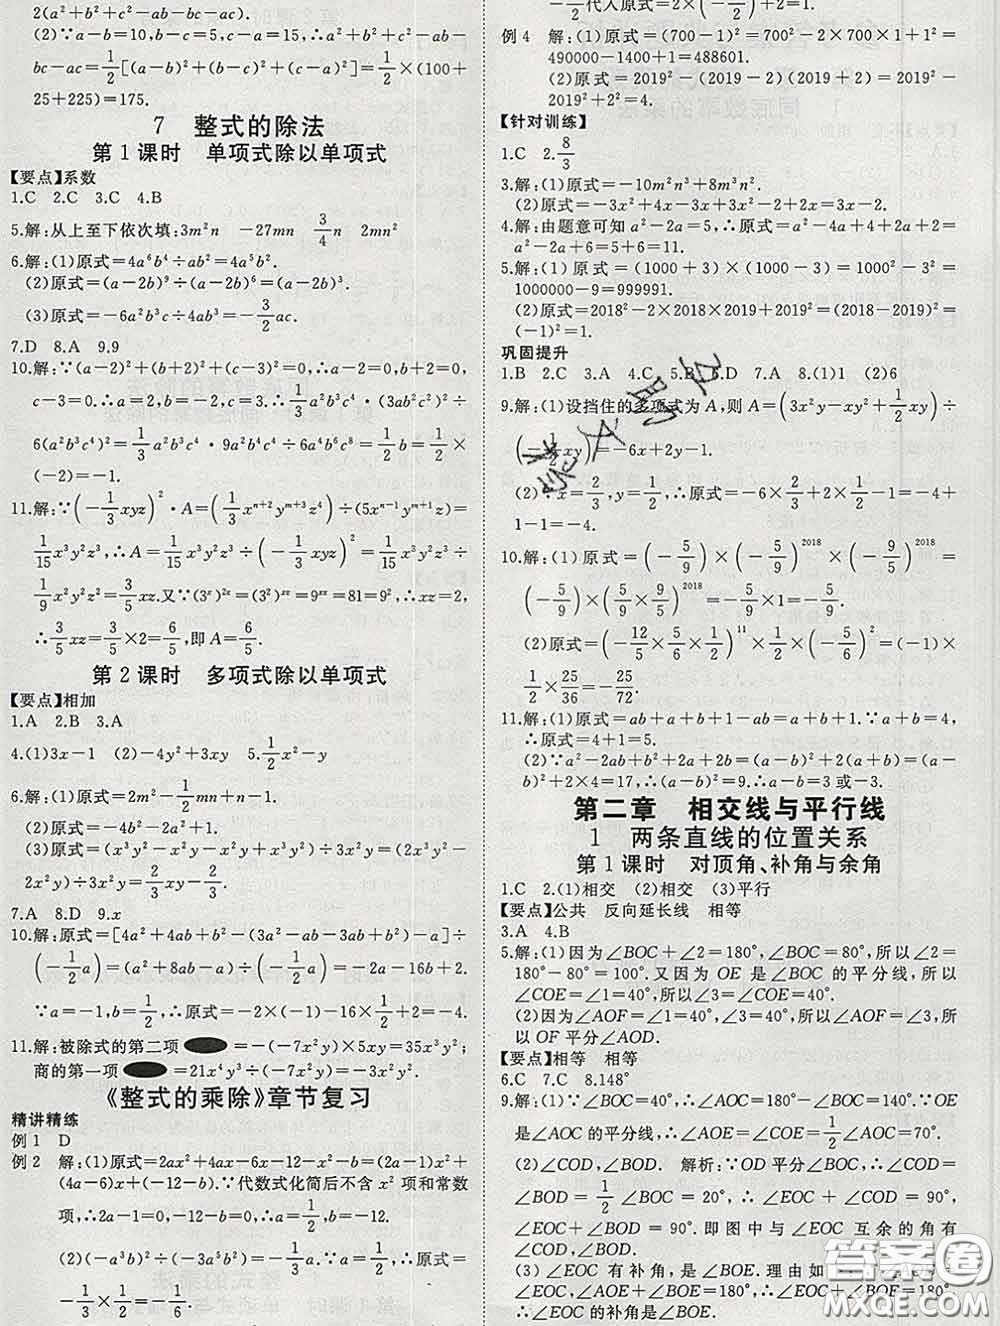 2(a²+b²+c²-ab-bc-ac).
(2)∵a-b=10,b-c=5,c-a=15,∴a²+b²+c²-ab-
bc-ac=1/2[(a-b)²+(b-c)²+(c-a)²]=1/2×(100+
25+225)=175.
7 整式的除法
第1课时 单项式除以单项式
【要点】系数
1.C 2.C 3.C 4.B
5.解:从上至下依次填:3m²n -27mn 3/4n 2mn²
6.解:(1)原式=4a⁶b⁴÷ab²=4a⁵b².
(2)原式=(a-2b)⁹÷(a-2b)⁶=(a-2b)³.
(3)原式=-6a²b³c÷4ab³=-3/2ac.
7.D 8.A 9.9
10.解:∵(a-2)²+(b+2)²+(c-3)²=0,∴a-2=0,b+2=0,
c-3=0.∴a=2,b=-2,c=3.∴1/3a³b³c⁴·(3ab²c²)²÷
6(a²b³c⁴)²=1/3a³b³c⁴·9a²b⁴c⁴÷6a⁴b⁶c⁸=1/2b=1/2×
(-2)=-1.
11.解:∵(-1/3xyz)²·A=(1/3xⁿ⁺²yᵐ⁺³z⁴)÷(5xⁿ⁻¹yᵐ⁺¹z)=
1/15x³y²z³,∴A=1/15x³y²z³÷(-1/3xyz)²=1/15x³y²z³÷
1/9x²y²z²=3/5xz.又∵(3ˣ)²ᶻ=(3²)ᶻˣ=9ᶻˣ=81=9²,∴xz=2,
∴3/5xz=3/5×2=6/5,即A=6/5.
第2课时 多项式除以单项式
【要点】相加
1.A 2.B 3.A
4.(1)3x-1 (2)-4y²+3xy 5.1/2x²-y
6.解:(1)原式=2m²-1/2mn+n-1.
(2)原式=-4b²-2a²+1.
(3)原式=(x³y²-x²y-x²y+x³y²)÷3x²y=(2x³y²-
2x²y)÷3x²y=2/3xy-2/3.
7.A 8.D 9.x
10.解:原式=[4a²+4ab+b²-(3a²-ab-3ab+b²)-a]÷
(-1/2a)=(a²+8ab-a)÷(-1/2a)=-2a-16b+2.
∵a=-1,b=1/2,∴原式=-2×(-1)-16×1/2+2=-4.
11.解:被除式的第二项=-(-7x²y)×5xy=35x³y²;
商的第一项=21x⁴y³÷(-7x²y)=-3x²y².
《整式的乘除》章节复习
精讲精练
例1 D
例2 解:(1)原式=2ax²+4ax-6x-12-x²-b=(2a-1)x²+
(4a-6)x+(-12-b).∵代数式化简后不含x²项和常数
项,∴2a-1=0,-12-b=0,∴a=1/2,b=-12.
(2)原式=(-a³b²)÷(-3a⁵b²)-a²=-1/3a²-a².∵a=1/2,∴原式=
-1/3×1/2=-1/6.
-1/2代入原式=2×(-1/2)+1=2.
例4 解:(1)原式=(700-1)²=700²-2×700×1+1²=
490000-1400+1=488601.
(2)原式=2019²-(2019-2)(2019+2)=2019²-
2019²+2²=4.
【针对训练】
1.C 2.8/3
3.解:(1)原式=-10m²n³+8m³n².
(2)原式=-3x²+4x-3x+3x²-2+2x=3x-2.
4.解:由题意可知a²-2a=5,∴原式=a²-4a+4+2a+2=
a²-2a+6=5+6=11.
5.解:(1)原式=(1000+3)×(1000-3)=1000²-3²=
1000000-9=999991.
(2)原式=2018²-2×2018×2019+2019²=(2018-2019)²=
(-1)²=1.
巩固提升
1.B 2.C 3.A 4.C 5.B 6.D 7.A 8.(1)1 (2)6
9.解:(1)设挡住的多项式为A,则A=(3x²y-xy²+1/2xy)÷
(-1/2xy)=-6x+2y-1.
(2)∵x=2/3,y=1/2,∴原式=-6×2/3+2×1/2-1=-4+
1-1=-4.
10.解:(1)原式=(-5/9)×(-5/9)²⁰¹⁸×(-9/5)²⁰¹⁸=
(-5/9)×(5/9×9/5)²⁰¹⁸=-5/9×1=-5/9.
(2)原式=(-12/5×5/6×1/2)¹¹×1/2×(-5/6)²=(-1)×
1/2×25/36=-25/72.
11.解:(1)原式=ab+a+b+1-ab=a+b+1.∵a+b=4,
∴原式=4+1=5.
(2)∵a²-2ab+b²+2a+2b=(a-b)²+2(a+b)=(a-
b)²+2×4=17,∴(a-b)²=9.∴a-b=3或-3.
第二章 相交线与平行线
1 两条直线的位置关系
第1课时 对顶角、补角与余角
1.C 2.(1)相交 (2)相交 (3)平行
【要点】公共 反向延长线 相等
3.A 4.B
5.解:(1)因为∠BOC+∠2=180°,∠BOC=80°,所以∠2=
180°-80°=100°.又因为OE是∠BOC的平分线,所以
∠COE=∠1=40°,所以∠3=∠COE=40°.
(2)因为∠AOF=∠1=40°,∠3=40°,所以∠AOF=∠3,所
以OF平分∠AOD.
【要点】相等 相等
6.C 7.C 8.148°
9.解:(1)∵∠BOC=40°,∴∠AOC=180°-∠BOC=140°.∵OE
是∠AOC的平分线,∴∠AOE=∠COE=1/2∠AOC=70°.
(2)∠COD,∠BOD. 解析:∵OD平分∠BOC,∴∠COD=
∠BOD=1/2∠BOC=20°,∴∠EOC+∠COD=90°,
∠EOC+∠BOD=90°.即图中与∠EOC互余的角有
∠COD,∠BOD.
(3)∠EOC有补角,是∠BOE.
∴∠EOC的补角是∠BOE.
答案圈
MXQE.COM